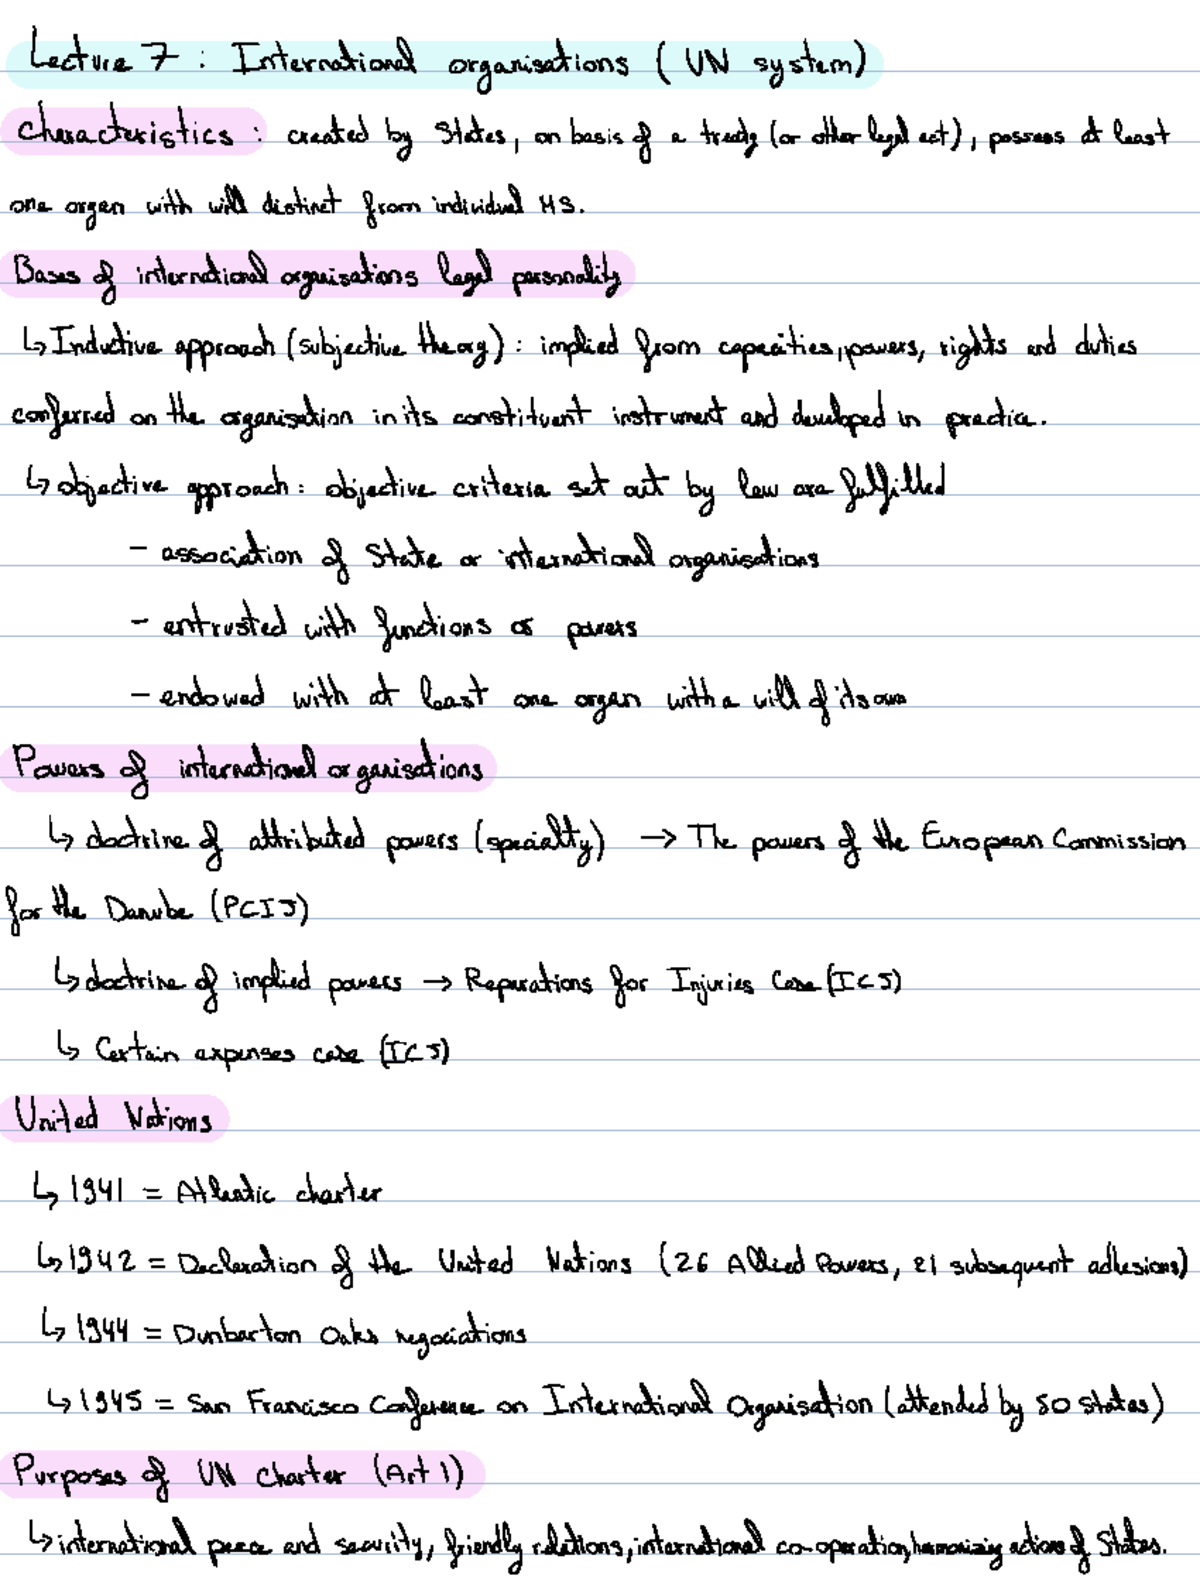 Lecture 7 : International organisations ( UN system)
Characteristics : created by States, on basis of a treaty (or other legal act), possess at least
one organ with will distinct from individual MS.
Bases of international organisations legal personality
↳ Inductive approach (subjective theory) : implied from capacities, powers, rights and duties
conferred on the organisation in its constituent instrument and developed in practice.
↳ objective approach : objective criteria set out by law are fulfilled
- association of State or international organisations
- entrusted with functions or powers
- endowed with at least one organ with a will of its own
Powers of international organisations
↳ doctrine of attributed powers (specialty) → The powers of the European Commission
for the Danube (PCIJ)
↳ doctrine of implied powers → Reparations for Injuries Case (ICJ)
↳ Certain expenses case (ICJ)
United Nations
↳ 1941 = Atlantic charter
↳ 1942 = Declaration of the United Nations (26 Allied Powers, 21 subsequent adhesions)
↳ 1944 = Dunbarton Oaks negociations
↳ 1945 = San Francisco Conference on International Organisation (attended by 50 states)
Purposes of UN Charter (Art 1)
↳ international peace and security, friendly relations, international co-operation, harmonizing actions of States.